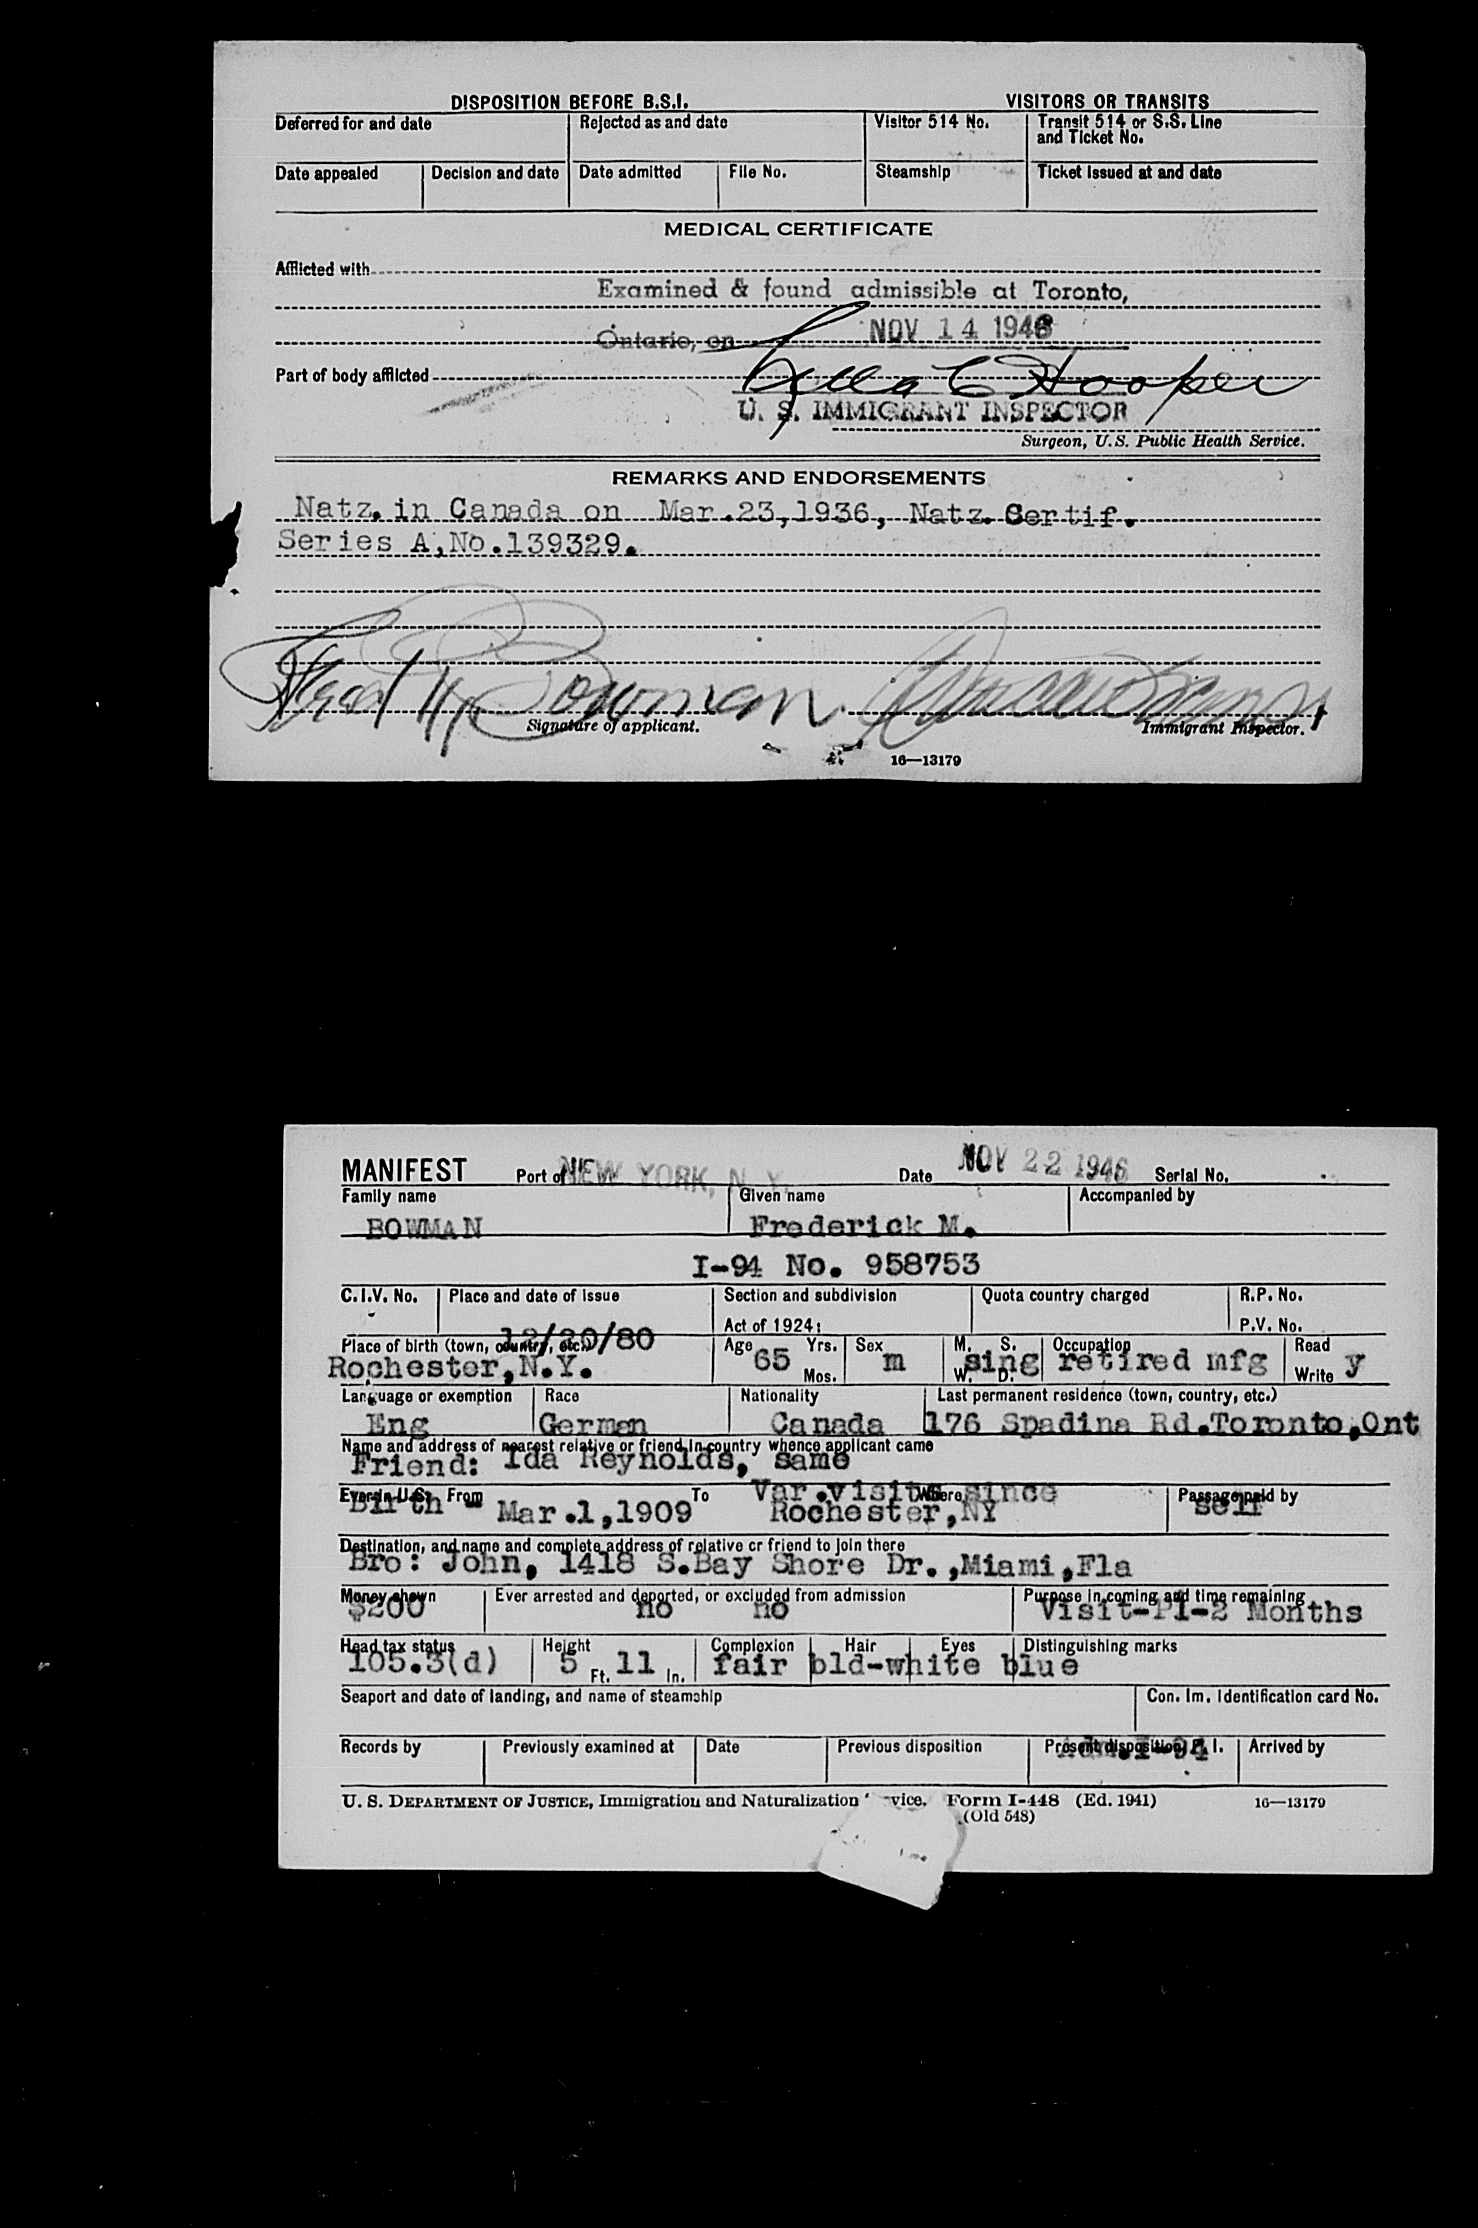 DISPOSITION BEFORE B.S.I. VISITORS OR TRANSITS
Deferred for and date Rejected as and date Visitor 514 No. Transit 514 or S.S. Line
and Ticket No.
Date appealed Decision and date Date admitted File No. Steamship Ticket issued at and date
MEDICAL CERTIFICATE
Afflicted with
Examined & found admissible at Toronto,
Ontario, on NOV 14 1946
Part of body afflicted
C Hooper
U. S. IMMIGRANT INSPECTOR
Surgeon, U.S. Public Health Service.
REMARKS AND ENDORSEMENTS
Natz. in Canada on Mar.23,1936, Natz. Certif.
Series A,No.139329.
Fred M Bowman.
Signature of applicant. Immigrant Inspector.
16—13179
MANIFEST Port of NEW YORK, N.Y. Date NOV 22 1946 Serial No.
Family name Given name Accompanied by
BOWMAN Frederick M.
I-94 No. 958753
C.I.V. No. Place and date of issue Section and subdivision Quota country charged R.P. No.
Act of 1924: P.V. No.
12/20/80
Place of birth (town, country, etc.) Age Yrs. Sex M. S. Occupation Read
Rochester,N.Y. 65 Mos. m W. D. sing retired mfg Write y
Language or exemption Race Nationality Last permanent residence (town, country, etc.)
Eng German Canada 176 Spadina Rd.Toronto,Ont
Name and address of nearest relative or friend in country whence applicant came
Friend: Ida Reynolds, same
Ever in U.S. From To Var.visits Where since Passage paid by
Birth - Mar.1,1909 Rochester,NY self
Destination, and name and complete address of relative or friend to join there
Bro: John, 1418 S.Bay Shore Dr.,Miami,Fla
Money shown Ever arrested and deported, or excluded from admission Purpose in coming and time remaining
$200 no no Visit-Pl-2 Months
Head tax status Height Complexion Hair Eyes Distinguishing marks
105.3(d) 5 Ft. 11 In. fair bld-white blue
Seaport and date of landing, and name of steamship Con. Im. Identification card No.
Records by Previously examined at Date Previous disposition Present disposition P. I. Arrived by
Adm.I-94
U. S. DEPARTMENT OF JUSTICE, Immigration and Naturalization vice. Form I-448 (Ed. 1941) 16—13179
(Old 548)